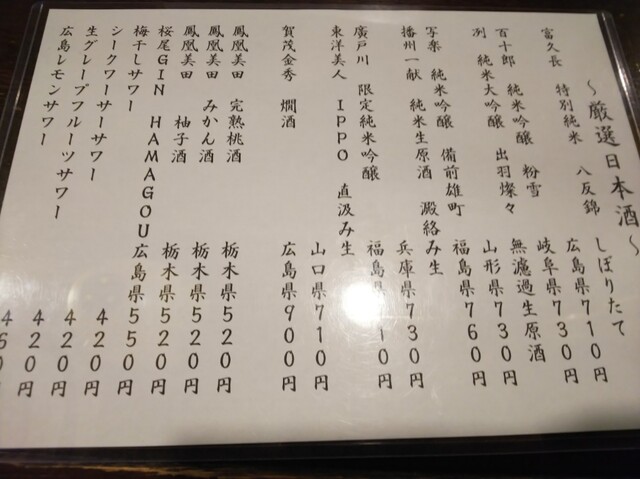 ～厳選日本酒～
富久長 特別純米 八反錦 しぼりたて
広島県710円
百十郎 純米吟醸 粉雪 無濾過生原酒
岐阜県730円
冽 純米大吟醸 出羽燦々 山形県730円
写楽 純米吟醸 備前雄町 福島県760円
播州一献 純米生原酒 澱絡み生 兵庫県730円
廣戸川 限定純米吟醸 福島 10円
東洋美人 IPPO 直汲み生 山口県710円
賀茂金秀 燗酒 広島県900円
鳳凰美田 完熟桃酒 栃木県520円
鳳凰美田 みかん酒 栃木県520円
鳳凰美田 柚子酒 栃木県520円
桜尾GIN HAMAGOU 広島県550円
梅干しサワー 420円
シークワーサーサワー 420円
生グレープフルーツサワー 420円
広島レモンサワー 460円